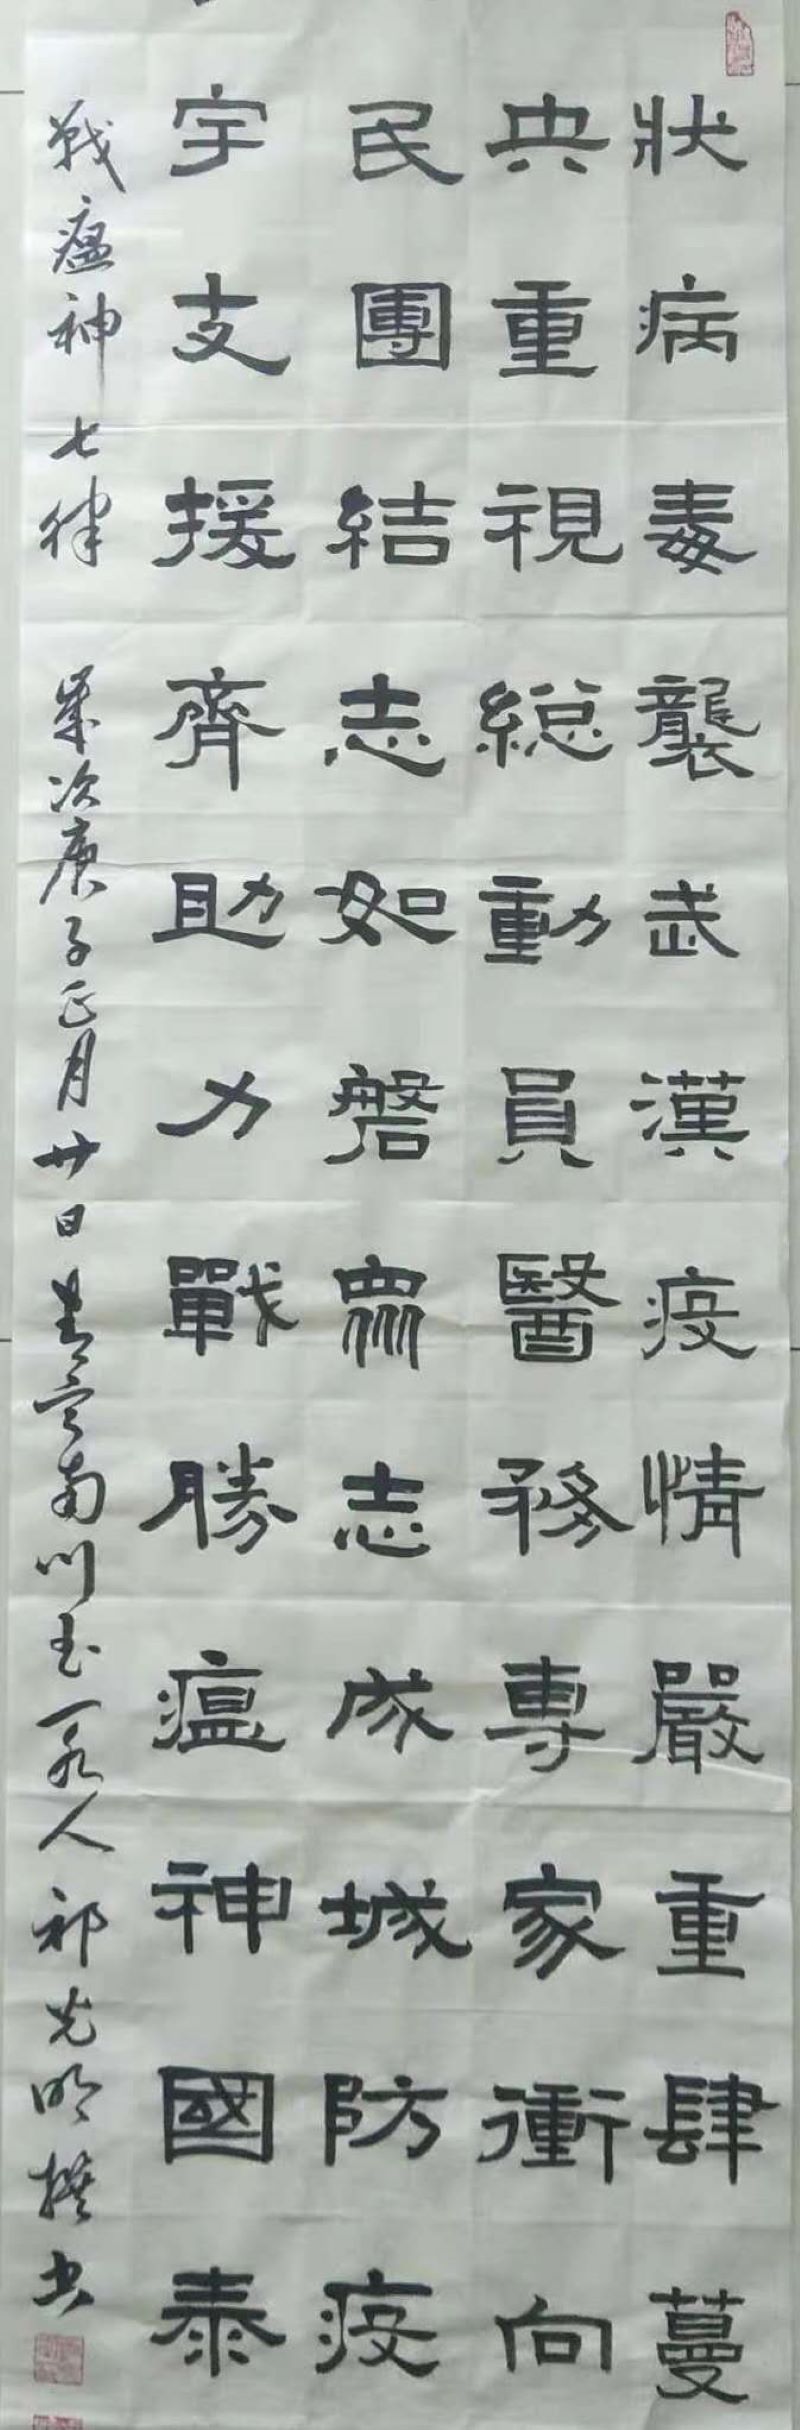 狀病毒襲武漢疫情嚴重肆蔓
央重視総動員醫務專家衝向
民團結志如磐眾志成城防疫
宇支援齊助力戰勝瘟神國泰
戰瘟神七律 歲次庚子正月廿日 南川 人祁光明撰书